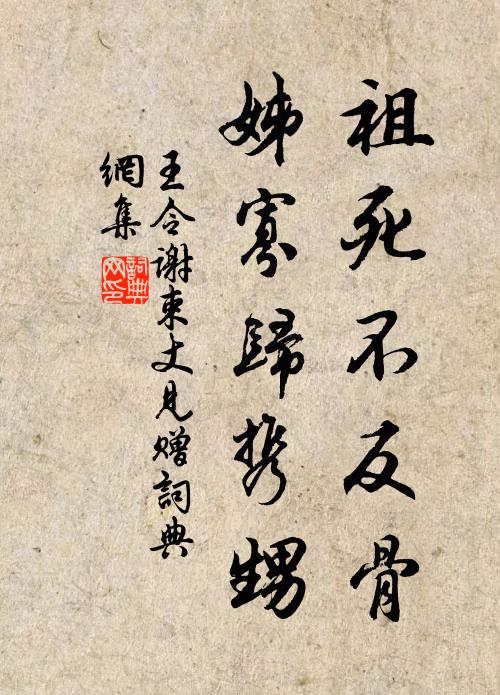 祖死不反骨
姊寡歸携甥
王令謝束丈見赠詞典
網集
詞典網印